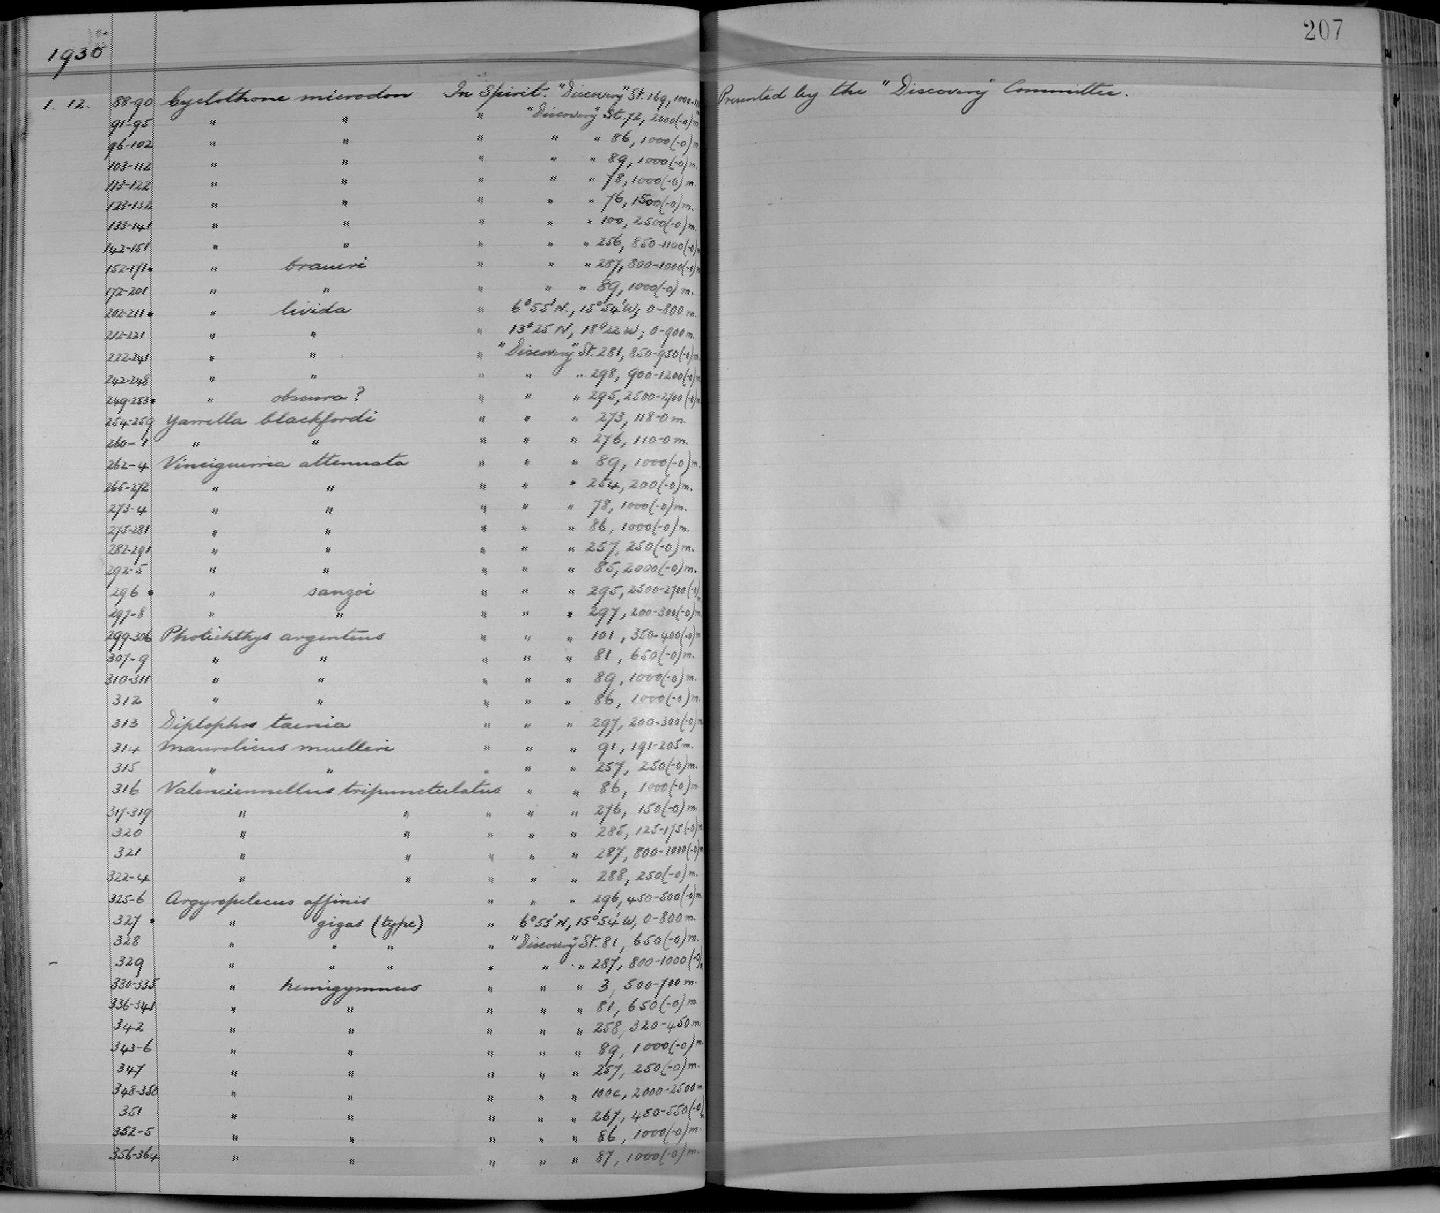 207
1930
1. 12. 88-90 Cyclothone microdon In Spirit. "Discovery" St. 169, 1000-11 Presented by the "Discovery" Committee.
91-95 " " " "Discovery" St. 72, 2000(-0)m
96-102 " " " " " 86, 1000(-0)m
103-112 " " " " " 89, 1000(-0)m
113-122 " " " " " 78, 1000(-0)m.
123-132 " " " " " 76, 1500(-0)m.
133-141 " " " " " 100, 2500(-0)m.
142-151 " " " " " 256, 850-1100(-0)
152-171. " braueri " " " 287, 800-1000(-0)
172-201 " " " " " 89, 1000(-0)m.
202-211. " livida " 6°55'N, 15°54'W, 0-800m.
212-221 " " " 13°25'N, 18°22'W, 0-900m
222-241 " " " "Discovery" St. 281, 850-950(-0)m
242-248 " " " " " 298, 900-1200(-0)
249-253. " obscura? " " " 295, 2500-2700(-0)
254-259 Yarrella blackfordi " " " 273, 118-0m.
260-1 " " " " " 276, 110-0m.
262-4 Vinciguerria attenuata " " " 89, 1000(-0)m.
265-272 " " " " " 254, 200(-0)m.
273-4 " " " " " 78, 1000(-0)m.
275-281 " " " " " 86, 1000(-0)m.
282-291 " " " " " 257, 250(-0)m.
292-5 " " " " " 85, 2000(-0)m.
296 . " sanzoi " " " 295, 2500-2700(-0)
297-8 " " " " " 297, 200-300(-0)m
299-306 Photichthys argenteus " " " 101, 350-400(-0)m
307-9 " " " " " 81, 650(-0)m.
310-311 " " " " " 89, 1000(-0)m.
312 " " " " " 86, 1000(-0)m
313 Diplophos taenia " " " 297, 200-300(-0)m
314 Maurolicus muelleri " " " 91, 191-205m.
315 " " " " " 257, 250(-0)m.
316 Valenciennellus tripunctulatus " " 86, 1000(-0)m
317-319 " " " " " 276, 150(-0)m.
320 " " " " " 285, 125-175(-0)m
321 " " " " " 287, 800-1000(-0)m
322-4 " " " " " 288, 250(-0)m.
325-6 Argyropelecus affinis " " " 296, 450-500(-0)m
327 . " gigas (type) " 6°55'N, 15°54'W, 0-800m.
328 " " " " "Discovery" St. 81, 650(-0)m.
329 " " " " " " 287, 800-1000(-0)
330-335 " hemigymnus " " " 3, 500-700m.
336-341 " " " " " 81, 650(-0)m
342 " " " " " 258, 320-450m
343-6 " " " " " 89, 1000(-0)m
347 " " " " " 257, 250(-0)m.
348-350 " " " " " 100c, 2000-2500m
351 " " " " " 267, 450-550(-0)
352-5 " " " " " 86, 1000(-0)m.
356-364 " " " " " 87, 1000(-0)m.